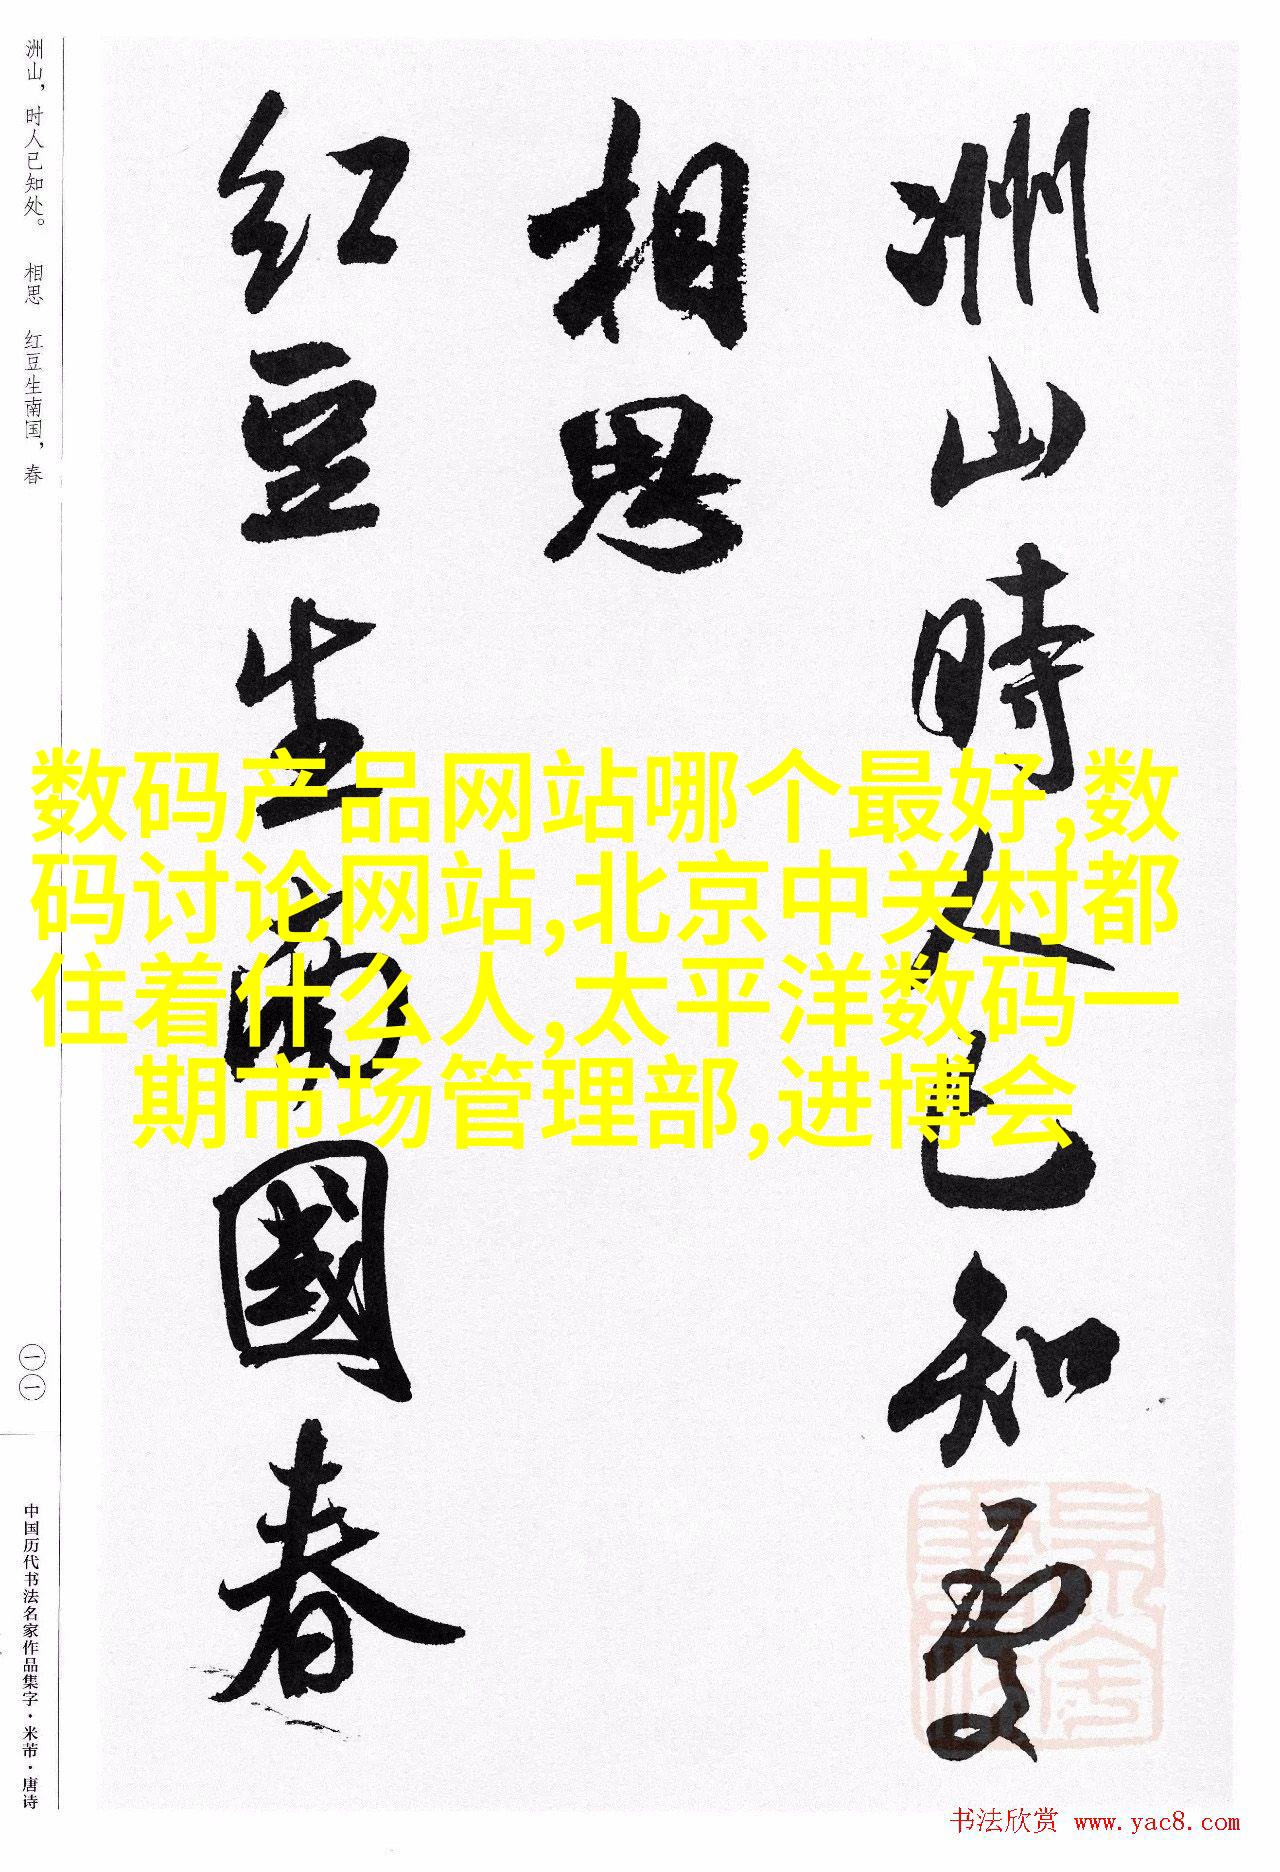 洲山時人已知處
相思
红豆生南國春
洲山，时人已知处。 相思 红豆生南国，春
一一
中国历代书法名家作品集字·米芾·唐诗
数码产品网站哪个最好,数
码讨论网站,北京中关村都
住着什么人,太平洋数码一
期市场管理部,进博会
书法欣赏 www.yac8.com